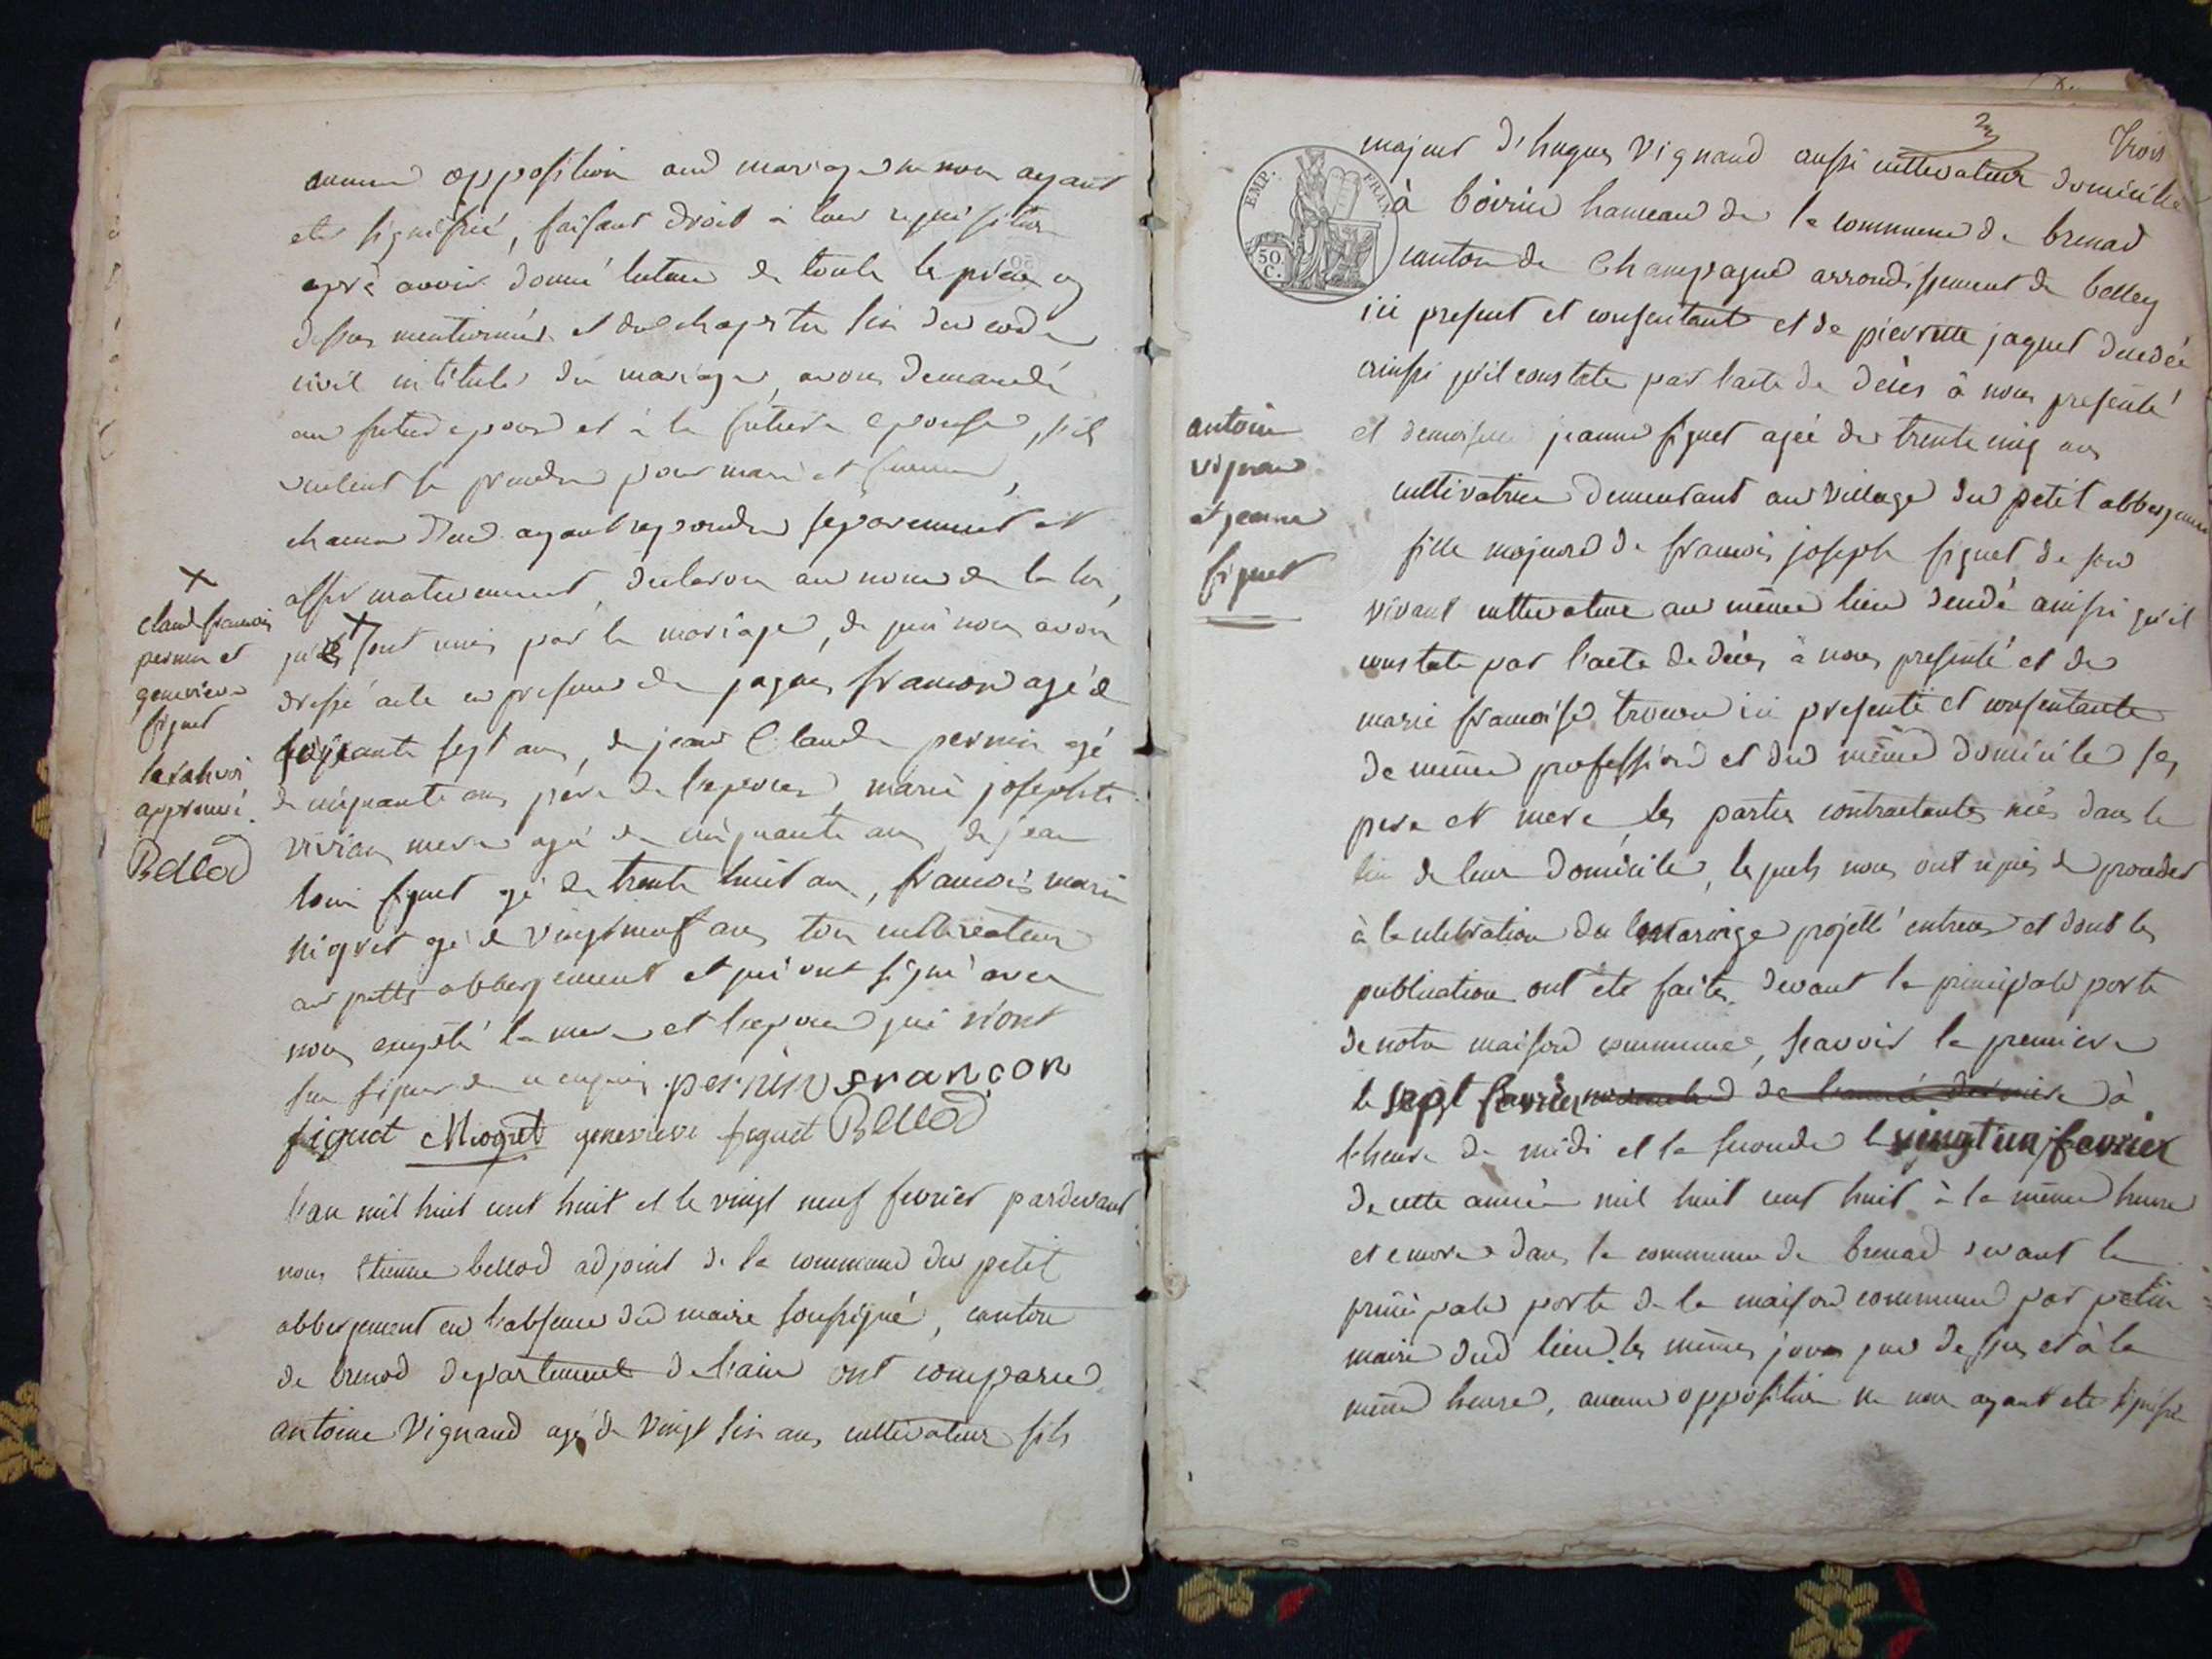 aucune opposition aud mariage ne nous ayant
eté signifié, faisant droit à leur requisition
aprè avoir donné lecture de toute le pièce cy
dessus mentionnés et du chapitre six du code
civil intitulé du mariage, avons demandé
au futur epoux et à la future epouse, s'ils
veulent se prendre pour mari et femme,
chacun d'eux ayant repondu séparement et
affirmativement, declarons au nom de la loi,
qu' sont unis par le mariage, de quoi nous avons
dressé acte en presence de jaques françon agé de
soixante sept ans, de jean Claude pernin agé
de cinquante ans père de l'epoux, marie josephte
vivian mere agé de cinquante ans, de jean
louis figuet agé de trente huit ans, francois marie
niogret agé de vingt neuf ans tous cultivateurs
au petit abbergement et qui ont signé avec
nous excepté la mere et l'epoux qui n'ont
su signer de ce enquis. pernin françon
figuet Niogret genevieve figuet Bellod
X
claud francois
pernin et
genevieve
figuet
le renvoi
approuvé.
Bellod
l'an mil huit cent huit et le vingt neuf fevrier pardevant
nous Etienne bellod adjoint de la commune du petit
abbergement en l'absence du maire soussigné, canton
de brenod departement de l'ain ont comparu
antoine Vignand agé de vingt six ans cultivateur fils
2
trois
EMP. FRAN.
50 C.
majeur d'hugues Vignand aussi cultivateur domicilié
à hameau de la commune de brenad
canton de Champagne arrondissement de belley
ici present et consentant et de pierrette jaquet decedée
ainssi qu'il constate par l'acte de décès à nous presenté
et demoiselle jeanne figuet agée de trente cinq ans
cultivatrice demeurant au village du petit abbergement
fille majeure de francois joseph figuet de son
vivant cultivateur au même lieu décédé ainssi qu'il
constate par l'acte de décès à nous presenté et de
marie francoise ici presente et consentante
de même profession et du même domicile ses
pere et mere, les parties contractantes nés dans le
lieu de leur domicile, lequels nous ont requis de proceder
à la celebration du mariage projetté entreux et dont les
publication ont été faites devant la principale porte
de notre maison commune, scavoir la premiere
le sept fevrier de l'année derniere à
l'heure de midi et la seconde le vingt un fevrier
de cette année mil huit cent huit à la même heure
et encore dans la commune de brenad devant la
principale porte de la maison commune par
maire dud lieu les mêmes jours que dessus et à la
même heure, aucune opposition ne nous ayant eté signifié
antoine
vignand
et jeanne
figuet